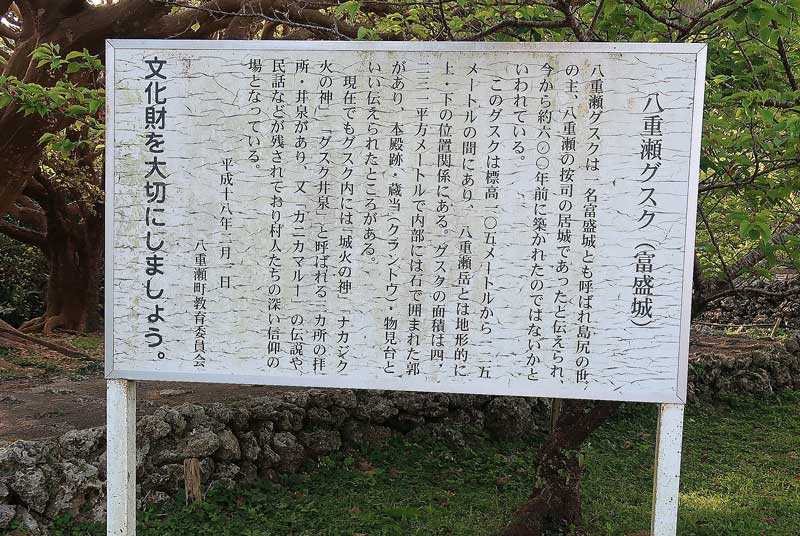 八重瀬グスク（富盛城）
八重瀬グスクは、名富盛城とも呼ばれ島尻の世
の主、八重瀬の按司の居城であったと伝えられ、
今から約六〇〇年前に築かれたのではないかと
いわれている。
このグスクは標高一〇五メートルから一二五
メートルの間にあり、八重瀬岳とは地形的に
上・下の位置関係にある。グスクの面積は四、
二三二平方メートルで内部には石で囲まれた郭
があり、本殿跡・蔵当（クラントウ）・物見台と
いい伝えられたところがある。
現在でもグスク内には「城火の神」「ナカジク
火の神」「グスク井泉」と呼ばれる三カ所の拝
所・井泉があり、又「カニカマルー」の伝説や、
民話などが残されており村人たちの深い信仰の
場となっている。
平成十八年二月一日
八重瀬町教育委員会
文化財を大切にしましょう。